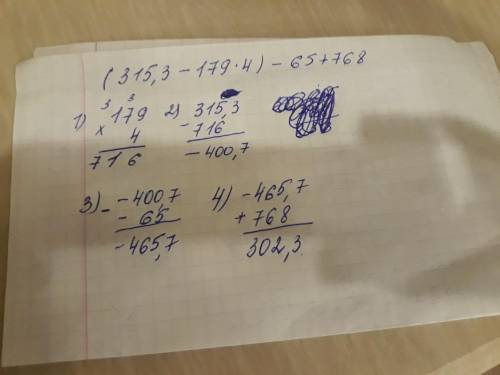 (315,3 - 179·4) - 65 + 768
1) 3 3
179
× 4
716
2) 315,3
- 716
-400,7
3) -400,7
- 65
-465,7
4) -465,7
+ 768
302,3